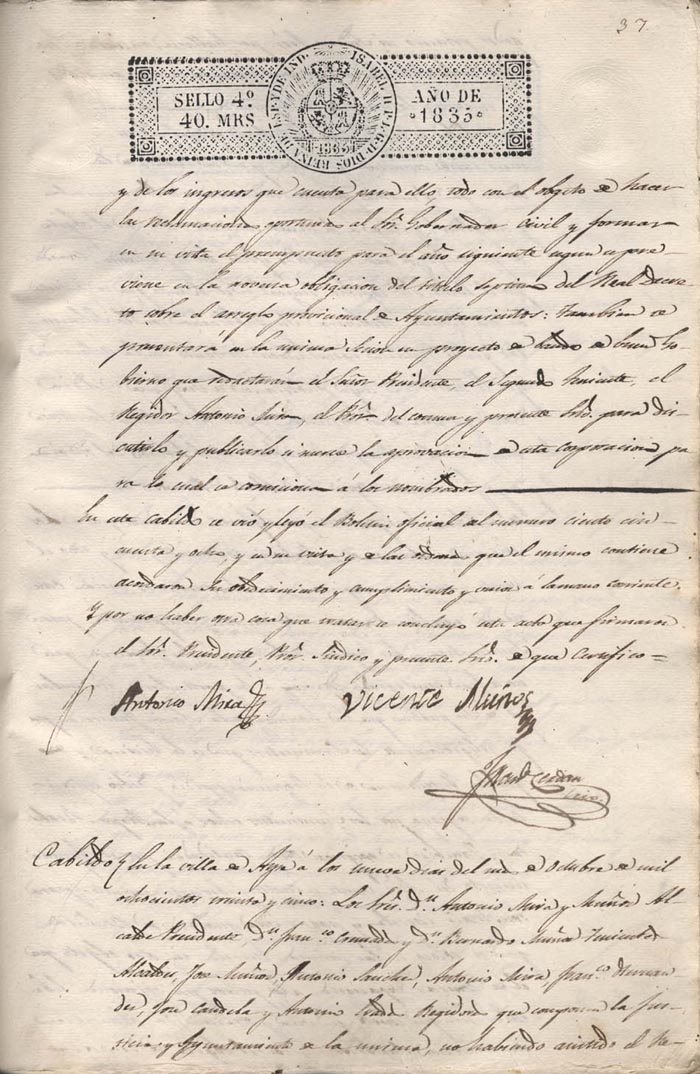 37.
SELLO 4º
40. MRS
ISABEL II P.L.G.D. DIOS REINA DE ESP. Y DE IND.
1835
AÑO DE
1835
y de los ingresos que cuenta para ello, todo con el objeto de hacer
las reclamaciones oportunas al Sor. Gobernador Civil y formar
en su vista el presupuesto para el año siguiente segun se pre-
viene en la novena obligacion del titulo septimo del Real Decre-
to sobre el arreglo provicional de Ayuntamientos: Tambien se
presentará en la misma Sesion un proyecto de bando de buen Go-
bierno que redactarán el Señor Presidente, el Segundo Teniente, el
Regidor Antonio Mira, el Pror. del comun y presente Srio. para dis-
cutirlo y publicarlo si merece la aprovacion de esta corporacion pa-
ra lo cual se comisiona á los nombrados
En este cabildo se vió y leyó el Boletin oficial del numero ciento cin-
cuenta y ocho, y en su vista y de las ordenes que el mismo contiene
acordaron su obedecimiento y cumplimiento y unir á la mano corriente.
Y por no haber otra cosa que tratar se concluyó esta acta que firmaron
el Sor. Presidente, Pror. Sindico y presente Srio. de que Certifico=
Antonio Mira Vicente Muñoz
Cerdan
Srio.
Cabildo En la villa de Aspe á los nueve dias del mes de Octubre de mil
ochocientos treinta y cinco: Los Sres. Dn. Antonio Mira y Muñoz Al-
calde Presidente, Dn. Franco. y Dn. Bernardo Muñoz Tenientes
Alcaldes, Jose Muñoz, Antonio Sanchez, Antonio Mira, Franco. Hernan-
dez, Jose Candela y Antonio Regidores que componen la Jus-
ticia y Ayuntamiento de la misma, no habiendo asistido el Re-